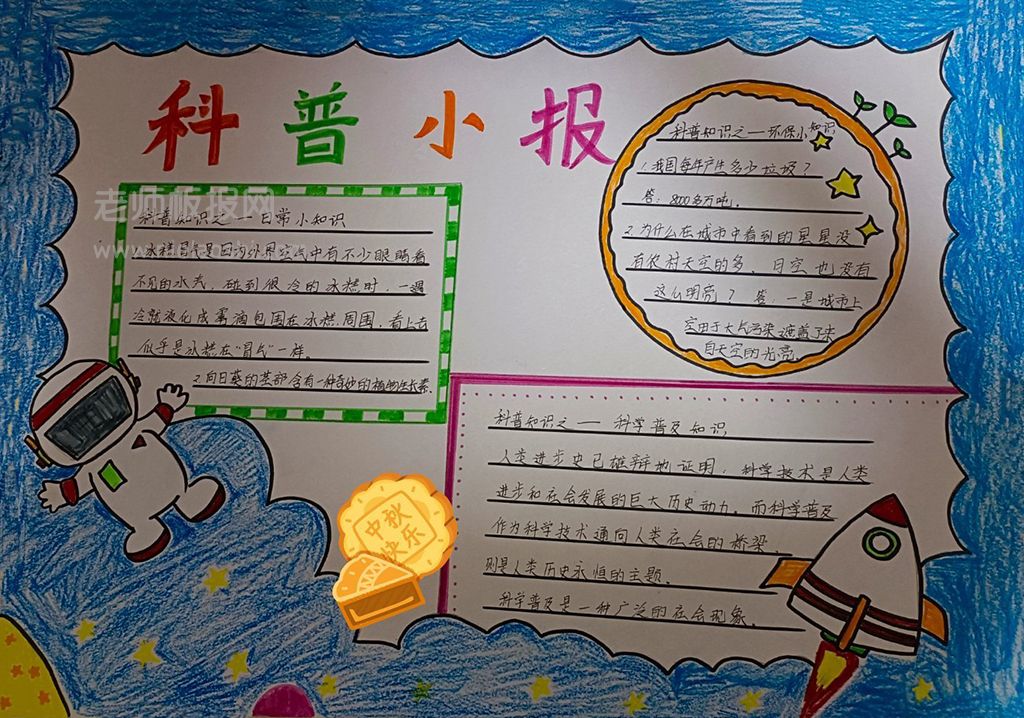 科普小报
老师板报网
科普知识之一日常小知识
冰糕冒气是因为外界空气中有不少眼睛看
不见的水汽，碰到很冷的冰糕时，一遇
冷就液化成雾滴包围在冰糕周围，看上去
似乎是冰糕在“冒气”一样。
2.向日葵的茎部含有一种奇妙的植物生长素.
科普知识之一环保小知识
1.我国每年产生多少垃圾？
答：8000多万吨。
2.为什么在城市中看到的星星没
有农村天空的多、日空也没有
这么明亮？答：一是城市上
空由于大气污染遮盖了来
自天空的光亮.
科普知识之 —— 科学普及知识
人类进步史已雄辩地证明，科学技术是人类
进步和社会发展的巨大历史动力。而科学普及
作为科学技术通向人类社会的桥梁、
则是人类历史永恒的主题、
科学普及是一种广泛的社会现象、
中秋
快乐